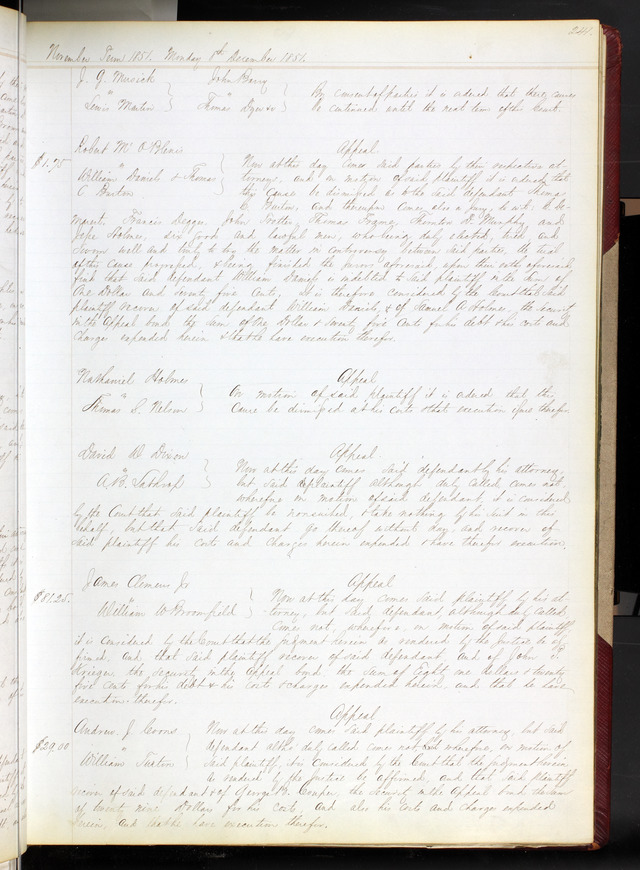 241.
November Term 1851. Monday 1st December 1851.
J. G. Musick John Barry
" " By consent of parties it is ordered that these causes
Lewis Martin Thomas Dyer be continued until the next term of this Court.
Robert Mc O'Blenis Appeal
$1.75 " Now at this day come said parties by their respective at
William Daniels & Thomas torneys, and on motion of said plaintiff it is ordered that
C Burton this cause be dismissed as to the said defendant Thomas
C Burton, and thereupon comes also a jury, to wit,
Francis John Thomas D. Murphy and
Jesse Holmes, six good and lawful men, who being duly elected, tried and
sworn well and truly to try the matter in controversy between said parties, the trial
of the cause progressed, & being finished the jurors aforesaid upon their oath aforesaid
find that said defendant William Daniels is indebted to said plaintiff in the sum of
One Dollar and Seventy five Cents; it is therefore considered by the Court that said
plaintiff recover of said defendant William Daniels, & of Samuel A Holmes, the security
in the Appeal bond the sum of One Dollar & Seventy five Cents for his debt & his costs and
charges expended herein & that he have execution therefor.
Nathaniel Holmes Appeal
" On motion of said plaintiff it is ordered that this
Thomas S. Nelson cause be dismissed at his costs & that execution issue therefor.
David B. Dixon Appeal.
" Now at this day comes said defendant by his attorney,
A.B. Lathrop but said plaintiff although duly called comes not
wherefore on motion of said defendant, it is considered
by the Court that said plaintiff be nonsuited, & take nothing by his suit in this
behalf, but that said defendant go thereof without day and recover of
said plaintiff his costs and charges herein expended & have therefor execution.
James Clemens Jr Appeal
$81.25. " Now at this day comes said plaintiff by his at
William W Broomfield torney, but said defendant although duly called
comes not, wherefore, on motion of said plaintiff
it is considered by the Court that the judgment herein as rendered by the Justice be af
firmed, and that said plaintiff recover of said defendant and of John
Krieger, the security in the Appeal bond, the sum of Eighty one dollars & twenty
five cents for his debt & his costs & charges expended herein, and that he have
execution therefor.
Appeal
Andrew J. Coons Now at this day comes said plaintiff by his attorney, but said
$29.00 " defendant altho duly called comes not wherefore, on motion of
William Tuston said plaintiff, it is considered by the Court that the judgment herein
as rendered by the Justice be affirmed, and that said plaintiff
recover of said defendant & of George B. the Security in the Appeal bond the sum
of twenty nine Dollars for his costs, and also his costs and charges expended
herein, and that he have execution therefor.